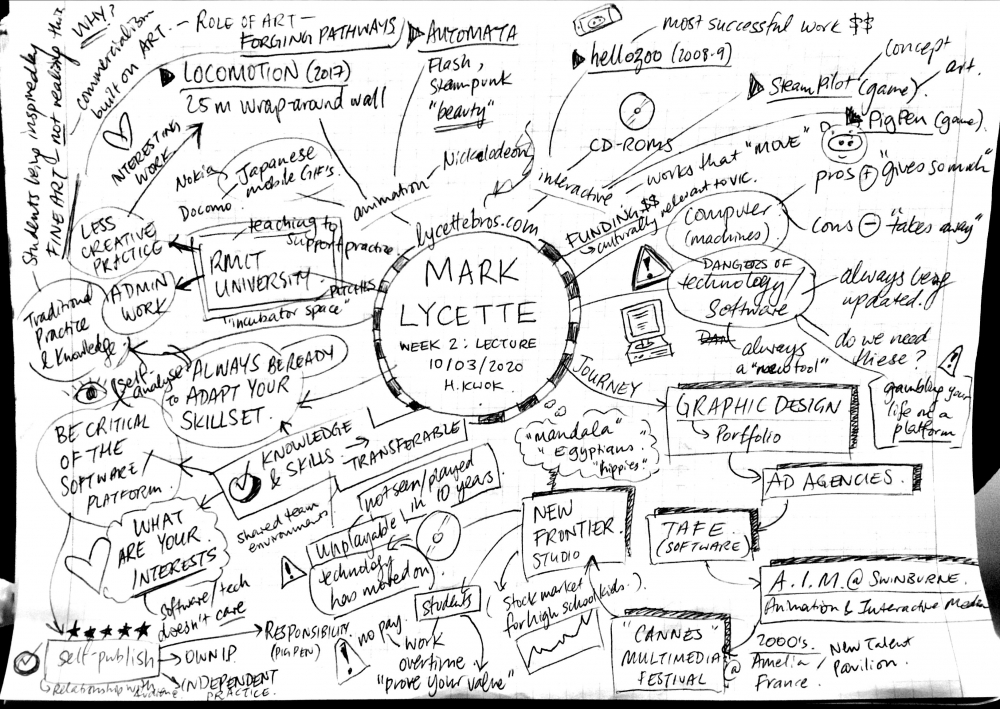 WHY?
Students being inspired by
FINE ART - not realising this
commercialism
built on ART.
- ROLE OF ART -
FORGING PATHWAYS
LOCOMOTION (2017)
25m wrap-around wall
AUTOMATA
Flash,
steampunk
"beauty"
most successful work $$
hellozoo (2008-9)
CD-ROMS
Steam Pilot (game).
concept
art.
PigPen (game).
pros + "gives so much"
cons - "takes away"
INTERESTING
WORK
Nokia
Docomo
Japanese
mobile GIF's.
animation
Nickelodeon
interactive
works that "MOVE"
FUNDING $$
→ culturally relevant to VIC.
lycettebros.com
MARK
LYCETTE
WEEK 2: LECTURE
10/03/2020
H.KWOK
LESS
CREATIVE
PRACTICE
teaching to
support practice
RMIT
UNIVERSITY
"incubator space"
ADMIN
WORK
Traditional
Practice
& Knowledge
self-
analyse
ALWAYS BE READY
to ADAPT YOUR
SKILLSET.
BE CRITICAL
OF THE
SOFTWARE/
PLATFORM.
KNOWLEDGE
& SKILLS.
TRANSFERABLE
shared team
environment
WHAT
ARE YOUR
INTERESTS
software/tech
doesn't care
self-publish
Relationship with
RESPONSIBILITY
(PIGPEN)
OWN IP.
INDEPENDENT
PRACTICE.
not seen/played
in 10 years
unplayable
technology
has moved on
students
no pay.
work
overtime
"prove your value"
computer
(machines)
DANGERS OF
technology/
Software
always being
updated.
do we need
these?
always
a "new tool"
gambling your
life on a
platform
JOURNEY
GRAPHIC DESIGN
→ Portfolio
AD AGENCIES.
TAFE.
(SOFTWARE)
A.I.M. @ SWINBURNE.
Animation & Interactive Media
"CANNES"
MULTIMEDIA
FESTIVAL
@
2000's.
Amelia /
France.
New Talent
Pavilion.
NEW
FRONTIER
STUDIO
"mandala"
Egyptians
"hippies"
Stock market
for high school kids.